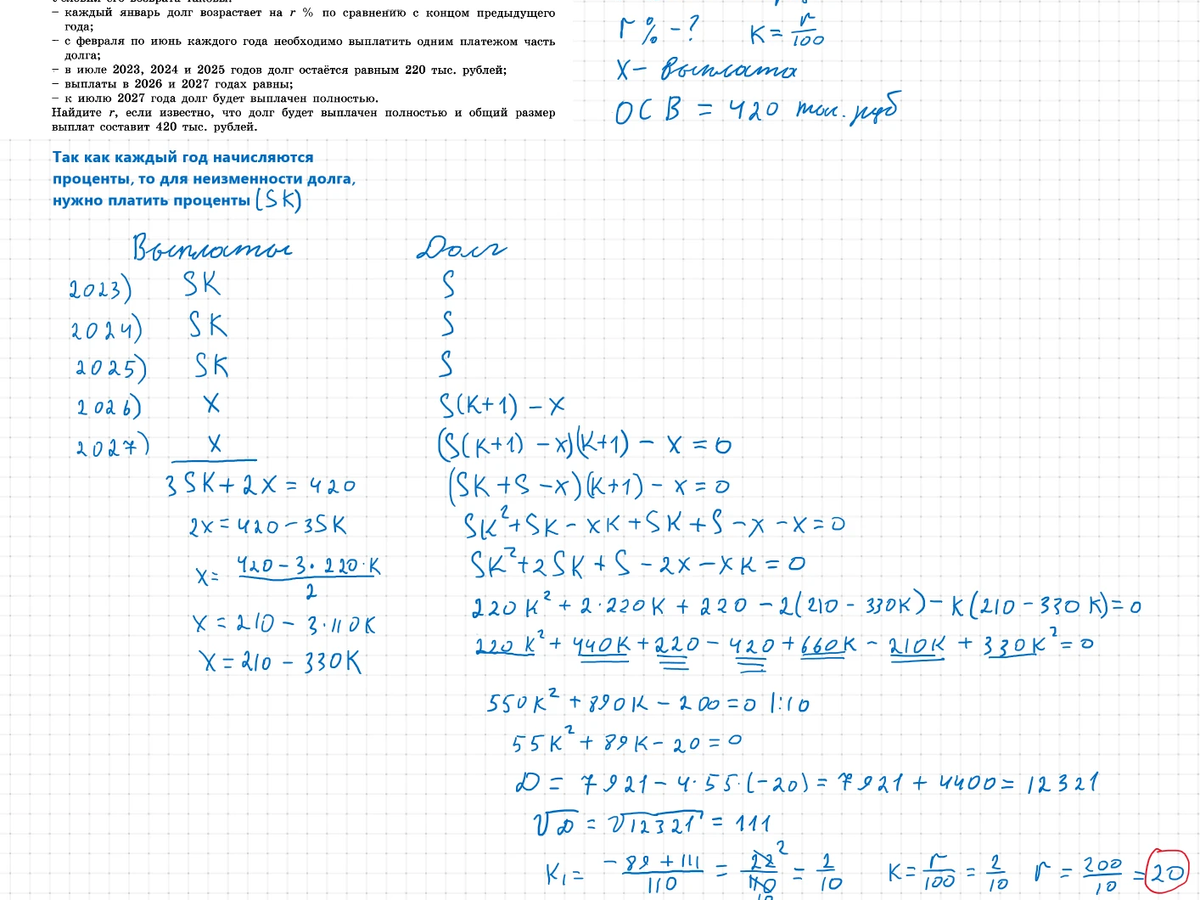 – каждый январь долг возрастает на r % по сравнению с концом предыдущего
года;
– с февраля по июнь каждого года необходимо выплатить одним платежом часть
долга;
– в июле 2023, 2024 и 2025 годов долг остаётся равным 220 тыс. рублей;
– выплаты в 2026 и 2027 годах равны;
– к июлю 2027 года долг будет выплачен полностью.
Найдите r, если известно, что долг будет выплачен полностью и общий размер
выплат составит 420 тыс. рублей.
r % – ? K = r/100
X – выплата
ОСВ = 420 тыс. руб
Так как каждый год начисляются
проценты, то для неизменности долга,
нужно платить проценты (SK)
Выплаты Долг
2023) SK S
2024) SK S
2025) SK S
2026) X S(K+1) – X
2027) X (S(K+1) – X)(K+1) – X = 0
3SK + 2X = 420 (SK + S – X)(K+1) – X = 0
2X = 420 – 3SK SK² + SK – XK + SK + S – X – X = 0
X = (420 – 3·220·K)/2 SK² + 2SK + S – 2X – XK = 0
X = 210 – 3·110K 220K² + 2·220K + 220 – 2(210 – 330K) – K(210 – 330K) = 0
X = 210 – 330K 220K² + 440K + 220 – 420 + 660K – 210K + 330K² = 0
550K² + 890K – 200 = 0 |:10
55K² + 89K – 20 = 0
D = 7921 – 4·55·(–20) = 7921 + 4400 = 12321
√D = √12321 = 111
K₁ = (–89 + 111)/110 = 22/110 = 2/10 K = r/100 = 2/10 r = 200/10 = 20